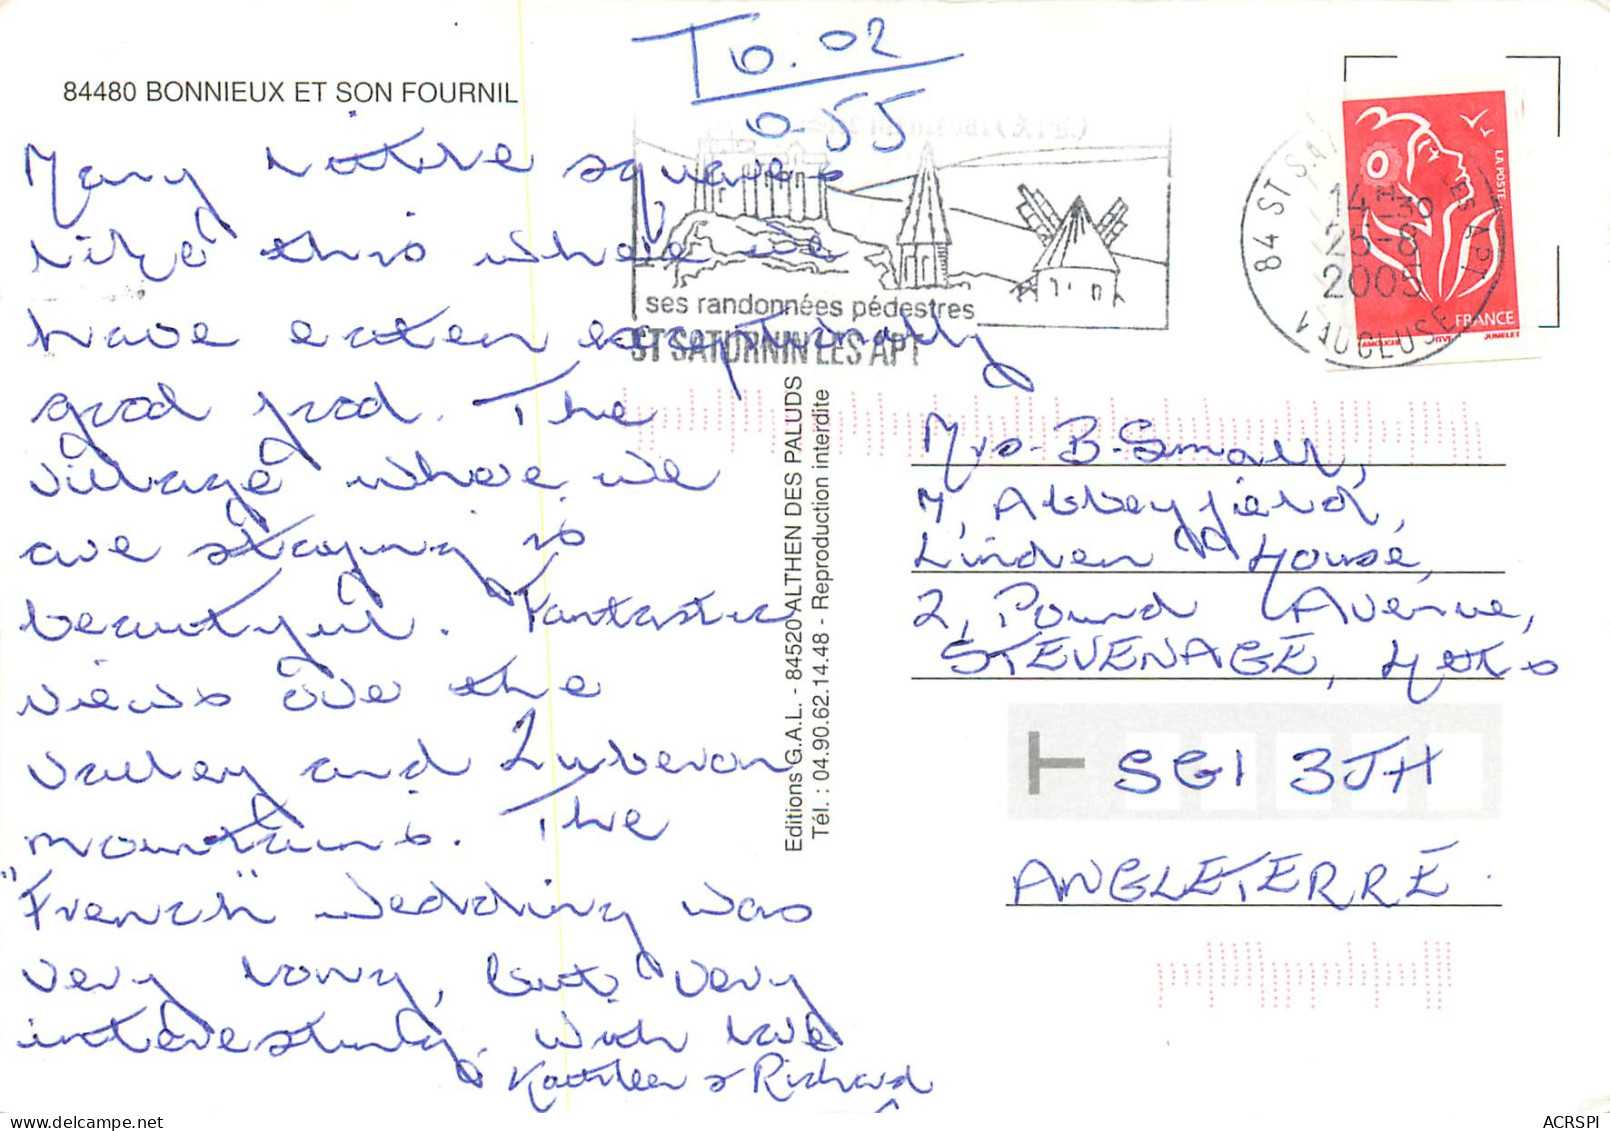 T 0.02
0.55
84480 BONNIEUX ET SON FOURNIL
Many little squares
like this where we
have eaten exceptionally
good food. The
village where we
are staying is
beautiful. Fantastic
views over the
valley and Luberon
mountains. The
"French" wedding was
very long, but very
interesting. With love
Kathleen & Richard
ses randonnées pédestres
ST SATURNIN LES APT
84 ST SAT LES APT
14H30
25-8
2005
VAUCLUSE
LA POSTE
FRANCE
JUMELET
Editions G.A.L. - 84520 ALTHEN DES PALUDS
Tél. : 04.90.62.14.48 - Reproduction interdite
Mrs. B. Small,
7, Abbeyfield,
Linden House,
2, Pound Avenue,
STEVENAGE, Herts
SG1 3JH
ANGLETERRE.
ACRSPI